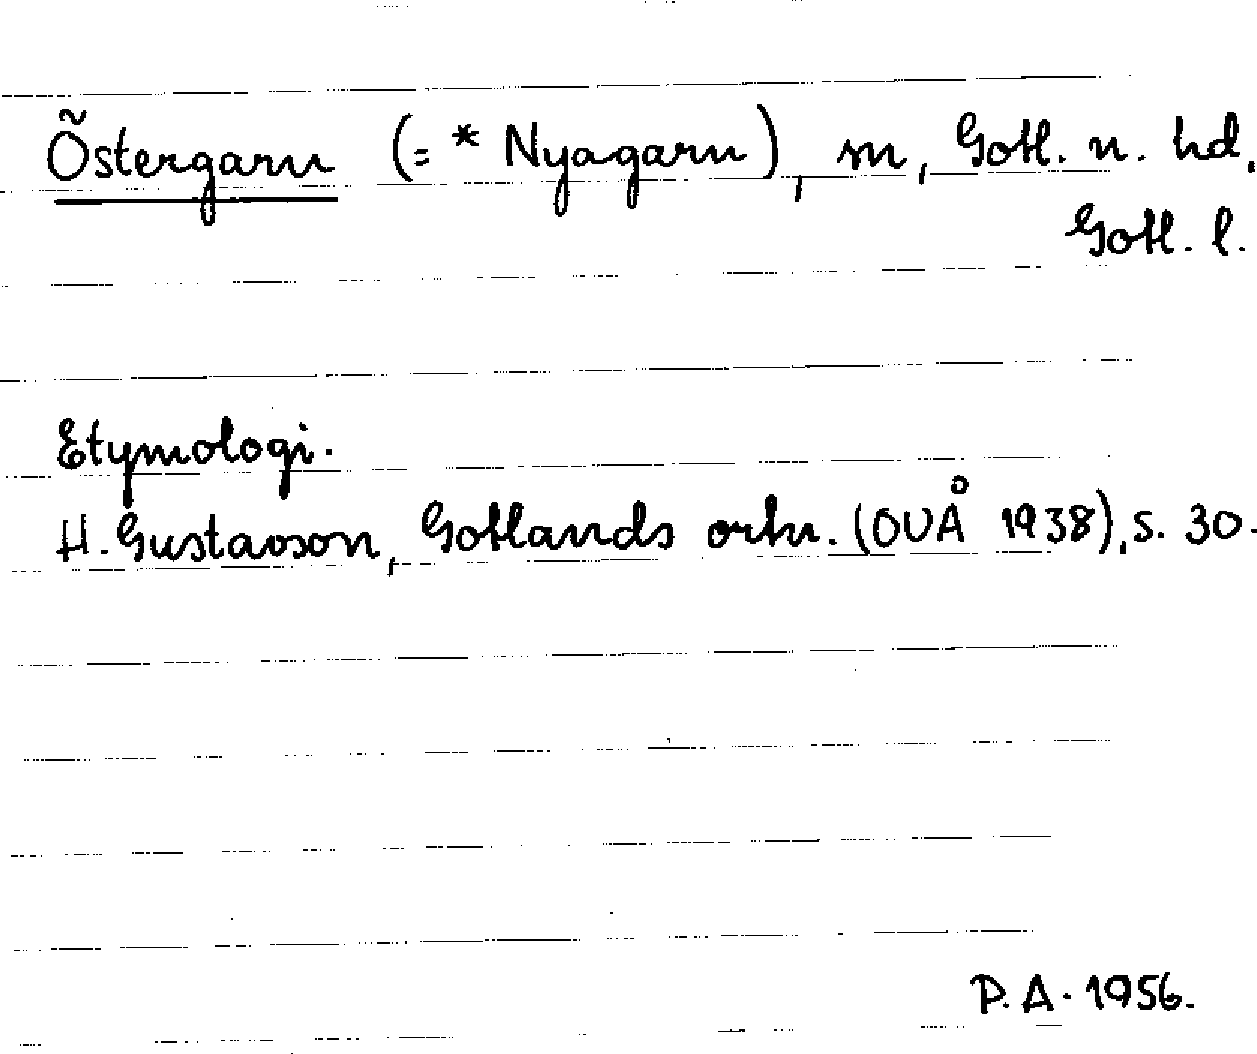 Östergarn (= * Nyagarn), m, Gotl. n. hd.
Gotl. l.
Etymologi.
H. Gustavson, Gotlands ortn. (OUÅ 1938), s. 30.
P. A. 1956.